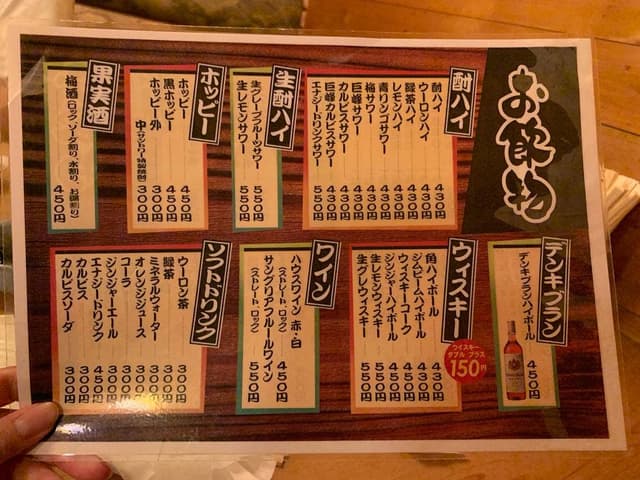 お飲物
酎ハイ
酎ハイ 430円
ウーロンハイ 430円
緑茶ハイ 430円
レモンハイ 430円
青リンゴサワー 430円
梅サワー 430円
巨峰サワー 430円
カルピスサワー 430円
巨峰カルピスサワー 430円
エナジードリンクサワー 550円
生酎ハイ
生グレープフルーツサワー 550円
生レモンサワー 550円
ホッピー
ホッピー 450円
黒ホッピー 450円
ホッピー外 300円
中(サントリー特製焼酎) 300円
果実酒
梅酒(ロック、ソーダ割り、水割り、お湯割り) 450円
デンキブラン
デンキブランハイボール 450円
ウィスキー
角ハイボール 430円
ジムビームハイボール 430円
ウィスキーコーク 450円
ジンジャーハイボール 450円
生レモンウィスキー 550円
生グレウィスキー 550円
ウイスキー
ダブル プラス
150円
ワイン
ハウスワイン 赤・白 450円
(ストレート、ロック)
サングリアフルールワイン 550円
(ストレート、ロック)
ソフトドリンク
ウーロン茶 300円
緑茶 300円
ミネラルウォーター 300円
オレンジジュース 300円
コーラ 300円
ジンジャーエール 300円
エナジードリンク 370円
カルピス 300円
カルピスソーダ 300円